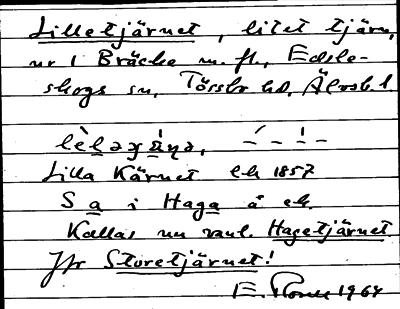 Lilletjärnet, litet tjärn,
nr 1 Bräcke m. fl., Edsle-
skogs sn, Tössbo hd, Älvsb. l.
Lilla Kärnet ek 1857
S a i Haga å ek.
Kallas nu vanl. Hagetjärnet
Jfr Storetjärnet!
E. 1964